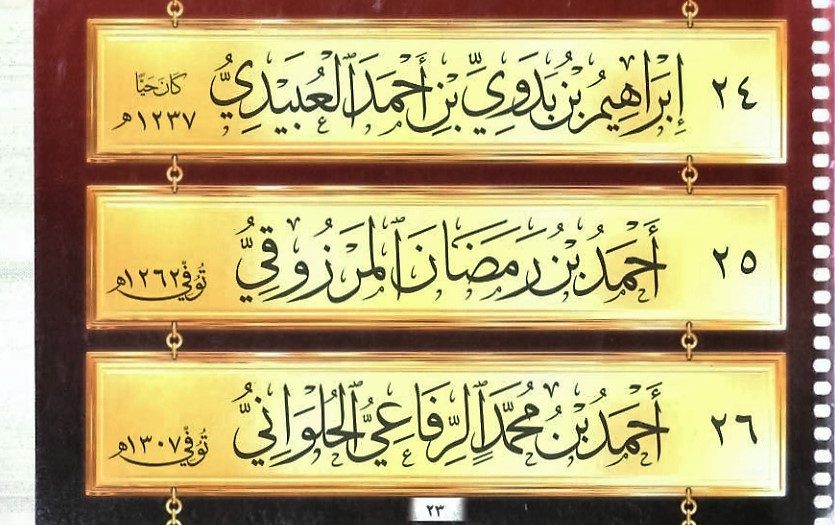 ٢٤ إِبْرَاهِيمُ بْنُ بَدَوِيِّ بْنِ أَحْمَدَ ٱلْعُبَيْدِيُّ كَانَ حَيًّا ١٢٣٧هـ
٢٥ أَحْمَدُ بْنُ رَمَضَانَ ٱلْمَرْزُوقِيُّ تُوُفِّيَ ١٢٦٢هـ
٢٦ أَحْمَدُ بْنُ مُحَمَّدٍ ٱلرِّفَاعِيُّ ٱلْحُلْوَانِيُّ تُوُفِّيَ ١٣٠٧هـ
٢٣